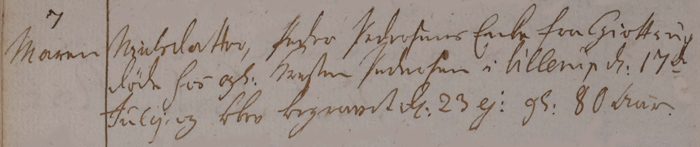 7
Maren Nielsdatter, Peder Pedersens Enke fra Giøttrup
døde hos gh: Pedersen i Lillerup d: 17de
July og blev begravet d: 23 ej: gl: 80 Aar.